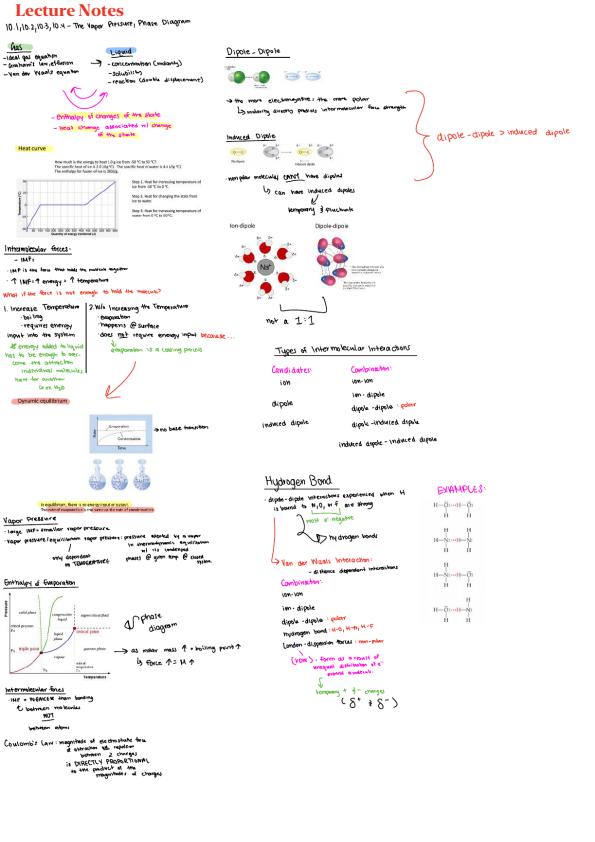 Lecture Notes
10.1, 10.2, 10.3, 10.4 - The Vapor Pressure, Phase Diagram
Gas
- Ideal gas equation
- Graham's law, effusion
- Van der Waals equation
Liquid
- concentration (molarity)
- solubility
- reaction (double displacement)
- enthalpy of changes of the state
- heat change associated w/ change
of the state
Heat curve
How much is the energy to heat 1.0 g ice from -50 °C to 50 °C?
Step 1. Heat for increasing temperature of
ice from -50 °C to 0 °C.
Step 2. Heat for changing the state from
ice to water.
Step 3. Heat for increasing temperature of
water from 0 °C to 50 °C.
Temperature (°C)
Intermolecular forces:
- IMFs
· IMF is the force that holds the molecule together
· ↑ IMF: ↑ energy = ↑ temperature
What if the force is not enough to hold the molecule?
1. Increase Temperature
· boiling
· requires energy
input into the system
energy added to liquid
has to be enough to over
come the attraction
individual molecules
have for another
2. W/o Increasing the Temperature
· evaporation
· happens @ surface
· does not require energy input because...
evaporation is a cooling process
Dynamic equilibrium
Rate
Evaporation
Condensation
Time
→ no base transition
In equilibrium, there is no energy input or output.
The rate of evaporation is the same as the rate of condensation.
Vapor Pressure
· large IMF = smaller vapor pressure
· vapor pressure/equilibrium vapor pressure: pressure exerted by a vapor
in thermodynamic equilibrium
w/ its condensed
phases @ given temp @ closed
system
only dependent
on TEMPERATURE!
Enthalpy of Evaporation
Pressure
solid phase
compressible
liquid
supercritical fluid
critical pressure
liquid
phase
critical point
triple point
vapour
gaseous phase
critical
temperature
Temperature
phase
diagram
→ as molar mass ↑ = boiling point ↑
↳ Force ↑ = M ↑
Intermolecular forces
· IMF = WEAKER than bonding
between molecules
NOT
between atoms
Coulomb's Law: magnitude of electrostatic force
of attraction or repulsion
between 2 charges
is DIRECTLY PROPORTIONAL
to the product of the
magnitudes of charges
Dipole - Dipole
→ the more electronegative: the more polar
↳ molarity directly predicts intermolecular force strength
Induced Dipole
· nonpolar molecules CAN'T have dipoles
↳ can have induced dipoles
temporary & fluctuate
dipole-dipole > induced dipole
Ion-dipole
Dipole-dipole
Na+
not a 1:1
Types of Intermolecular Interactions
Candidates:
ion
dipole
induced dipole
Combination:
ion-ion
ion-dipole
dipole-dipole: polar
dipole-induced dipole
induced dipole-induced dipole
Hydrogen Bond
· dipole-dipole interactions experienced when H
is bound to N, O, or F are strong
most e- negative
hydrogen bonds
→ Van der Waals Interaction:
- distance dependent interactions
Combination:
ion-ion
ion-dipole
dipole-dipole: polar
hydrogen bond: H-O, H-N, H-F
London-dispersion forces: non-polar
(VDW): form as a result of
unequal distribution of e-
around a molecule.
temporary + & - charges
(δ+ & δ-)
EXAMPLES: